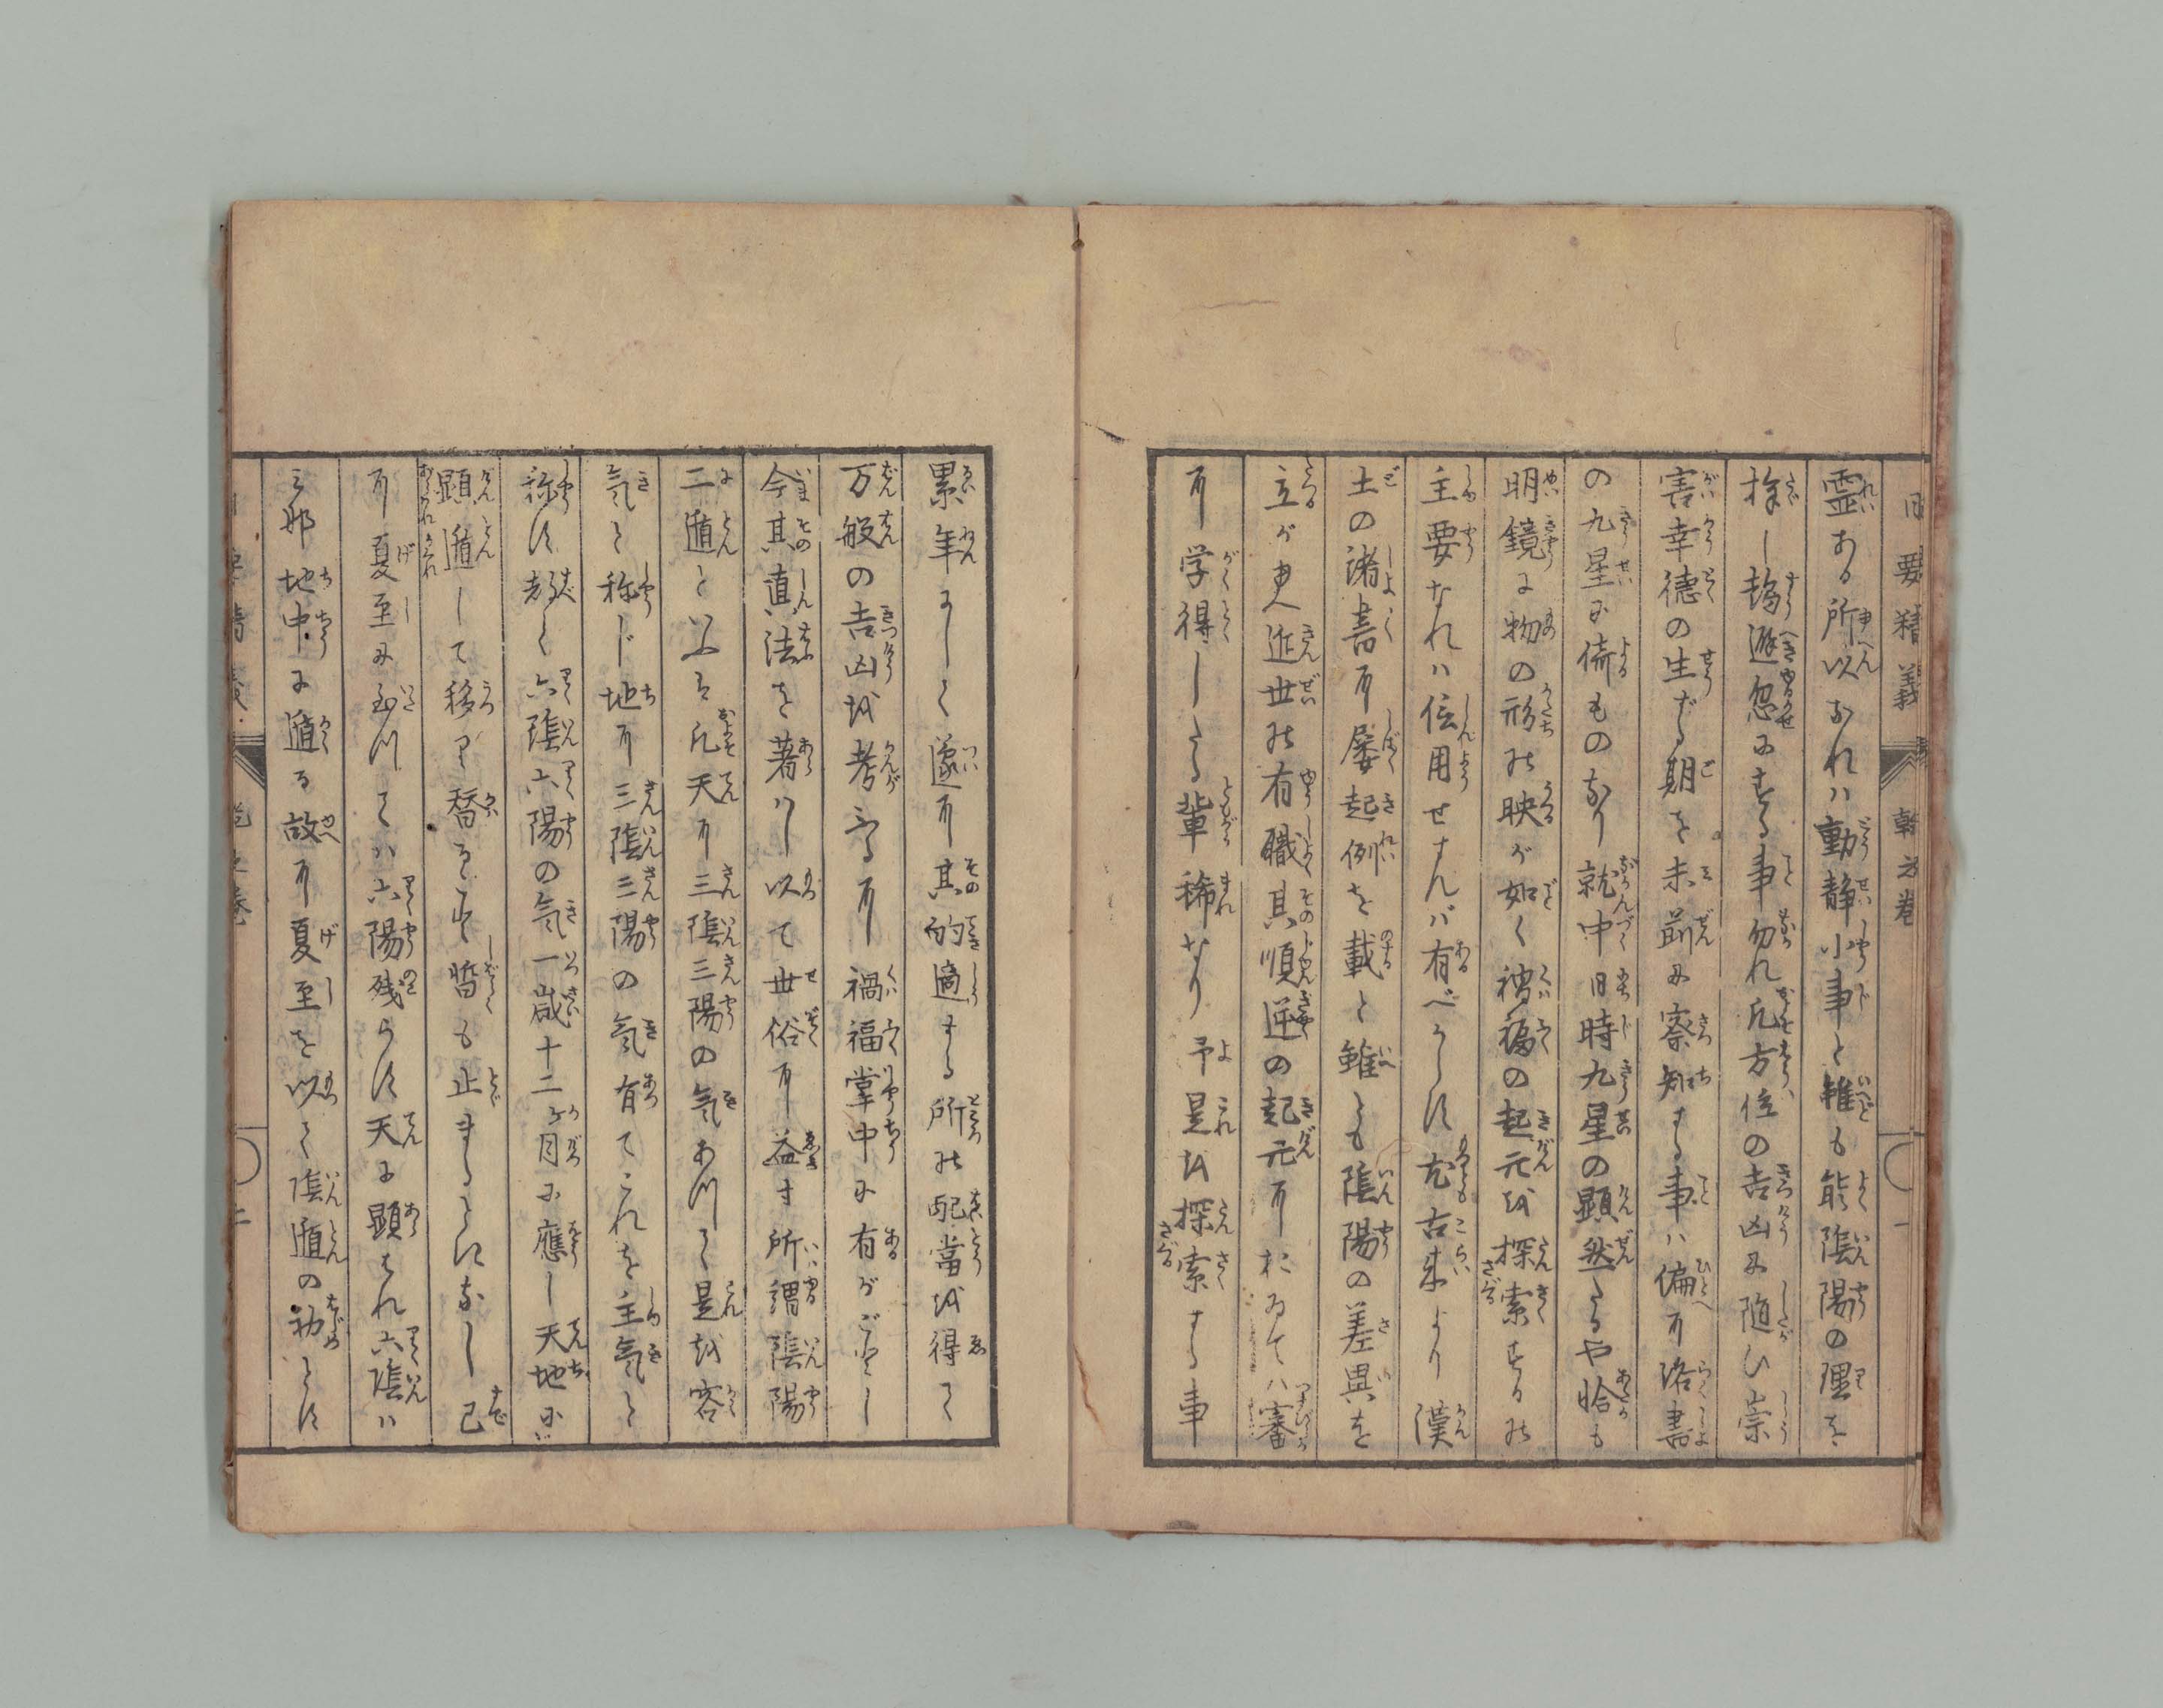 日要精義 乾之巻 一
霊ある所以なれハ動静小事と雖も能陰陽の理を
推し趨避忽にする事勿れ凡方位の吉凶に随ひ崇
害幸徳の生ずる期を未前に察知する事ハ偏に洛書
の九星に倚ものなり就中日時九星の顕然たるや恰も
明鏡に物の形の映が如く禍福の起元を探索するの
主要なれハ信用せずんバ有べからず尤古来より漢
土の諸書に屡起例を載と雖とも陰陽の差異を
立が更近世の有職其順逆の起元におゐてハ審
に学得したる輩稀なり予是を探索する事
累年にして遂に其的適する所の配當を得て
万般の吉凶を考ふるに禍福掌中に有がごとし
今其直法を著ハし以て世俗に益す所謂陰陽
二遁といふは凡天に三陰三陽の気あつて是を客
気と称じ地に三陰三陽の気有てこれを主気と
称す都て六陰六陽の気一歳十二ヶ月に應し天地に
顕遁して移り替る事暫も止まることなし已
に夏至に至つてハ六陽残らず天に顕はれ六陰ハ
地中に遁る故に夏至を以て陰遁の初とす